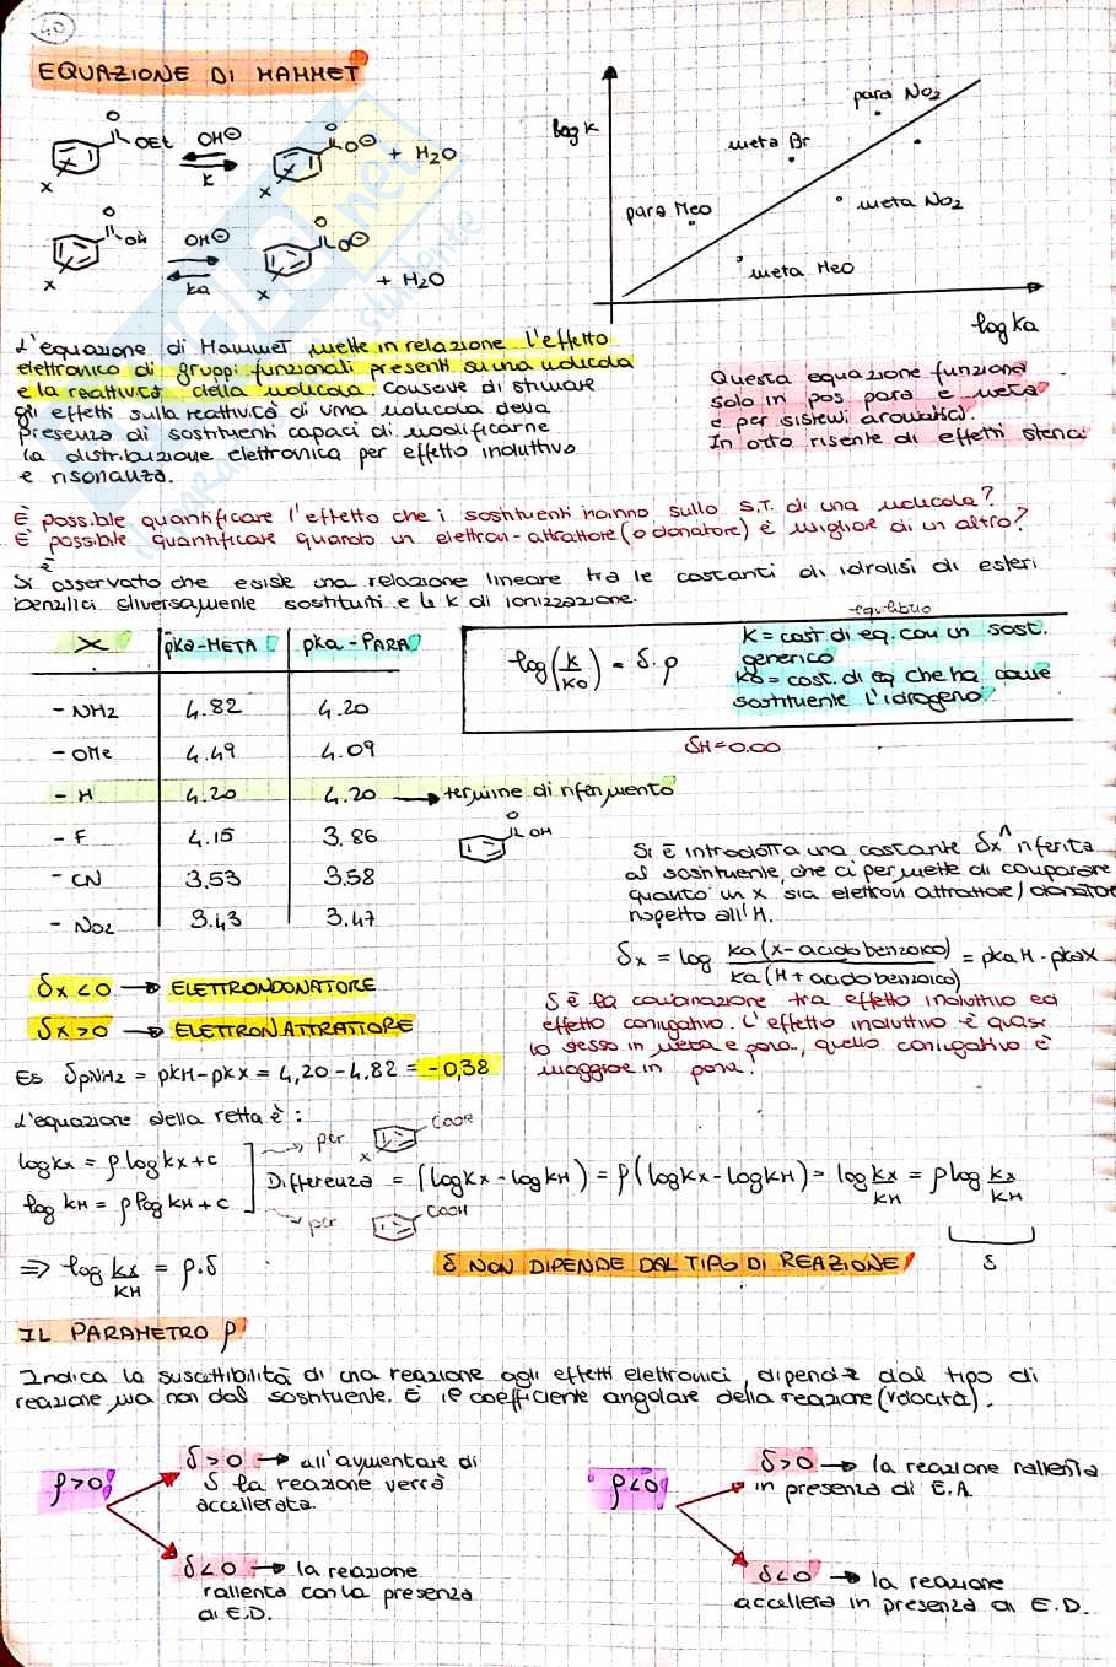 40
EQUAZIONE DI HAMMET
O
OEt
OH⊖
K
X
O
O⊖
X
+ H2O
O
OH
OH⊖
Ka
X
O
O⊖
X
+ H2O
log K
para NO2
meta Br
para MeO
meta NO2
meta MeO
log Ka
L'equazione di Hammet mette in relazione l'effetto
elettronico di gruppi funzionali presenti su una molecola
e la reattività della molecola. Consente di stimare
gli effetti sulla reattività di una molecola della
presenza di sostituenti capaci di modificarne
la distribuzione elettronica per effetto induttivo
e risonanza.
Questa equazione funziona
solo in pos para e meta
e per sistemi aromatici.
In orto risente di effetti sterici
È possibile quantificare l'effetto che i sostituenti hanno sullo S.T. di una molecola?
È possibile quantificare quando un elettron-attrattore (o donatore) è migliore di un altro?
Si è osservato che esiste una relazione lineare tra le costanti di idrolisi di esteri
benzilici diversamente sostituiti e le k di ionizzazione.
equilibrio
X pKa-META pKa-PARA
-NH2 4.82 4.20
-OMe 4.49 4.09
-H 4.20 4.20 → termine di riferimento
-F 4.15 3.86
-CN 3.53 3.58
-NO2 3.43 3.47
log(K/K0) = δ·ρ
K = cost. di eq. con un sost.
generico
K0 = cost. di eq che ha come
sostituente l'idrogeno
δH = 0.00
O
OH
Si è introdotta una costante δx riferita
al sostituente, che ci permette di comparare
quanto un x sia elettron attrattore/donatore
rispetto all'H.
δx = log Ka (X-acido benzoico) / Ka (H+acido benzoico) = pKaH - pKaX
δx < 0 → ELETTRONDONATORE
δx > 0 → ELETTRON ATTRATTORE
δ è la combinazione tra effetto induttivo ed
effetto coniugativo. L'effetto induttivo è quasi
lo stesso in meta e para, quello coniugativo è
maggiore in para.
Es δpNH2 = pKH-pKX = 4,20-4.82 = -0,38
L'equazione della retta è:
log Kx = ρ log Kx + c
log KH = ρ log KH + c
per
x
COOR
per
COOH
Differenza = (log Kx - log KH) = ρ(log Kx - log KH) = log Kx/KH = ρ log Kx/KH
δ
⇒ log Kx/KH = ρ·δ
δ NON DIPENDE DAL TIPO DI REAZIONE!
IL PARAMETRO ρ
Indica la suscettibilità di una reazione agli effetti elettronici, dipende dal tipo di
reazione ma non dal sostituente. È il coefficiente angolare della reazione (velocità).
ρ>0
δ>0 → all'aumentare di
δ la reazione verrà
accellerata.
δ<0 → la reazione
rallenta con la presenza
di E.D.
ρ<0
δ>0 → la reazione rallenta
in presenza di E.A.
δ<0 → la reazione
accellera in presenza di E.D.